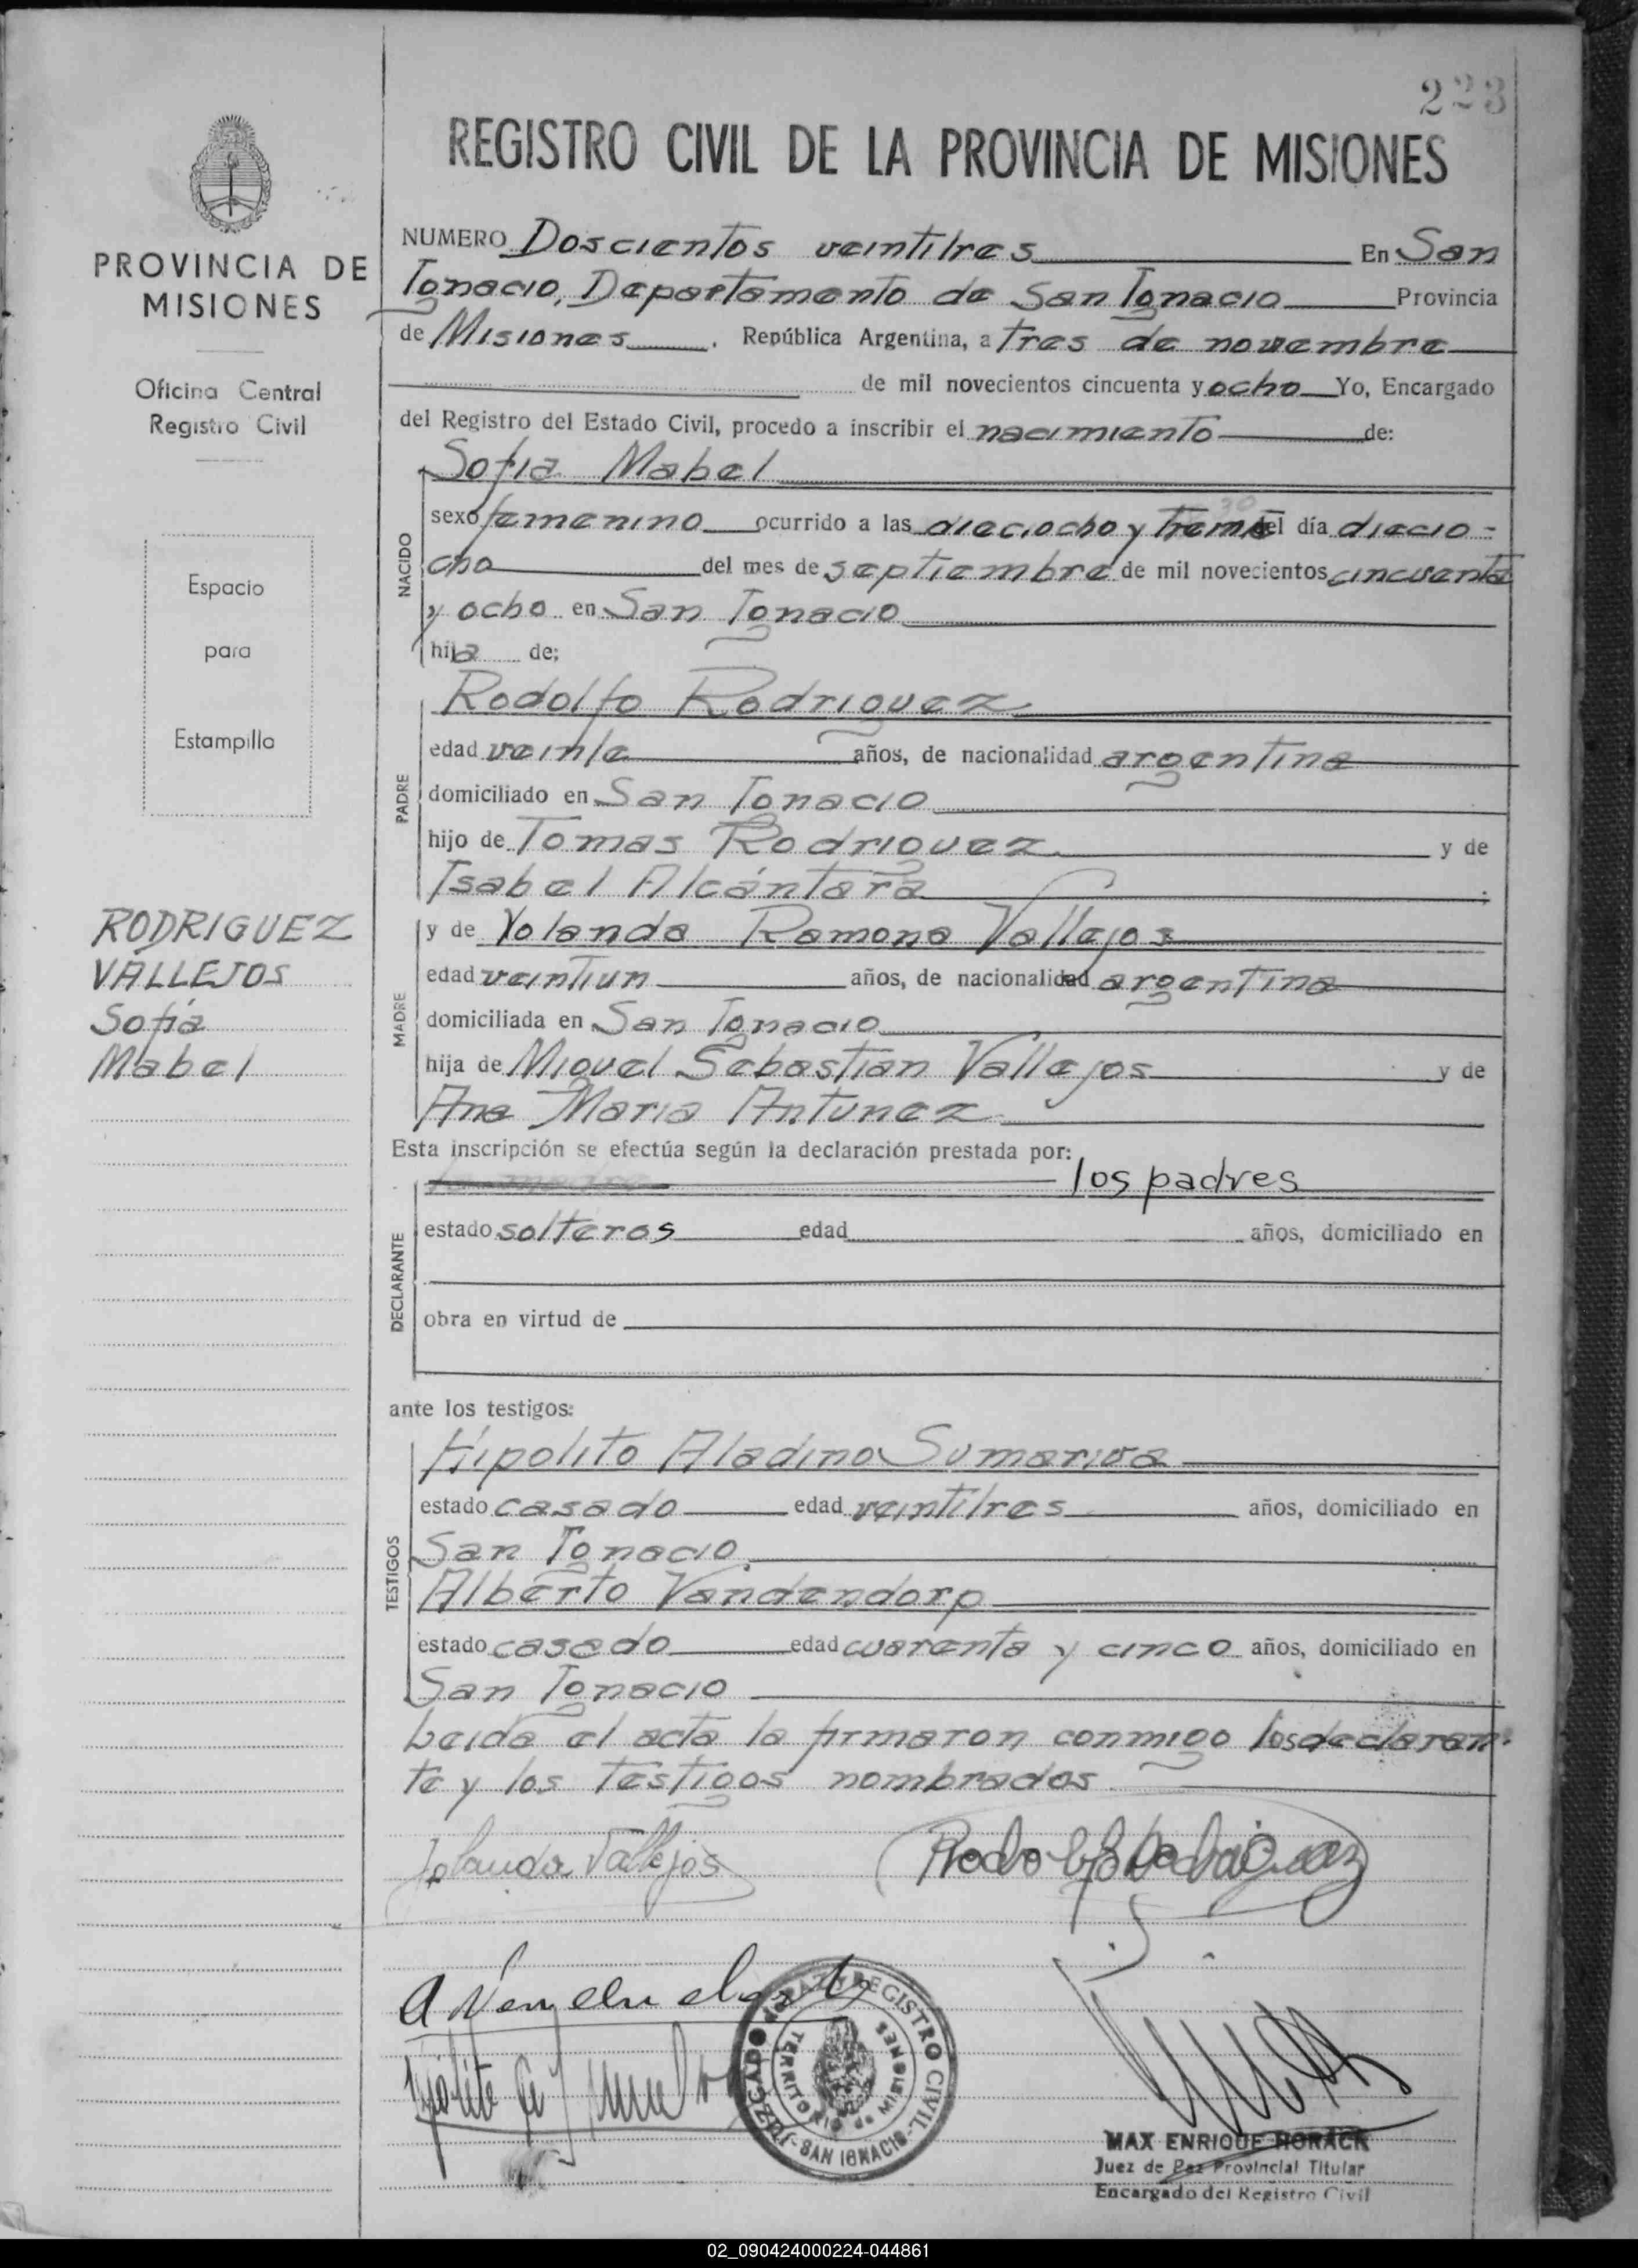 223
REGISTRO CIVIL DE LA PROVINCIA DE MISIONES
PROVINCIA DE
MISIONES
Oficina Central
Registro Civil
Espacio
para
Estampilla
RODRIGUEZ
VALLEJOS
Sofía
Mabel
NUMERO Doscientos veintitres En San
Ignacio, Departamento de San Ignacio Provincia
de Misiones. República Argentina, a tres de noviembre
de mil novecientos cincuenta y ocho Yo, Encargado
del Registro del Estado Civil, procedo a inscribir el nacimiento de:
NACIDO
Sofia Mabel
sexo femenino ocurrido a las dieciocho y treinta del día diecio-
30
cho del mes de septiembre de mil novecientos cincuenta
y ocho en San Ignacio
hija de;
PADRE
Rodolfo Rodriguez
edad veinte años, de nacionalidad argentina
domiciliado en San Ignacio
hijo de Tomas Rodriguez y de
Isabel Alcántara ;
MADRE
y de Yolanda Ramona Vallejos
edad veintiun años, de nacionalidad argentina
domiciliada en San Ignacio
hija de Miguel Sebastian Vallejos y de
Ana Maria Antunez
Esta inscripción se efectúa según la declaración prestada por:
DECLARANTE
la madre los padres
estado solteros edad años, domiciliado en
obra en virtud de
ante los testigos:
TESTIGOS
Hipolito Aladino Sumariva
estado casado edad veintitres años, domiciliado en
San Ignacio
Alberto Vandendorp
estado casado edad cuarenta y cinco años, domiciliado en
San Ignacio
Leida el acta la firmaron conmigo los declaran-
te y los testigos nombrados
Jolanda Vallejos
Rodolfo Rodriguez
JUZGADO DE PAZ Y REGISTRO CIVIL
TERRITORIO de MISIONES
- SAN IGNACIO -
MAX ENRIQUE HORACK
Juez de Paz Provincial Titular
Encargado del Registro Civil
02_090424000224-044861